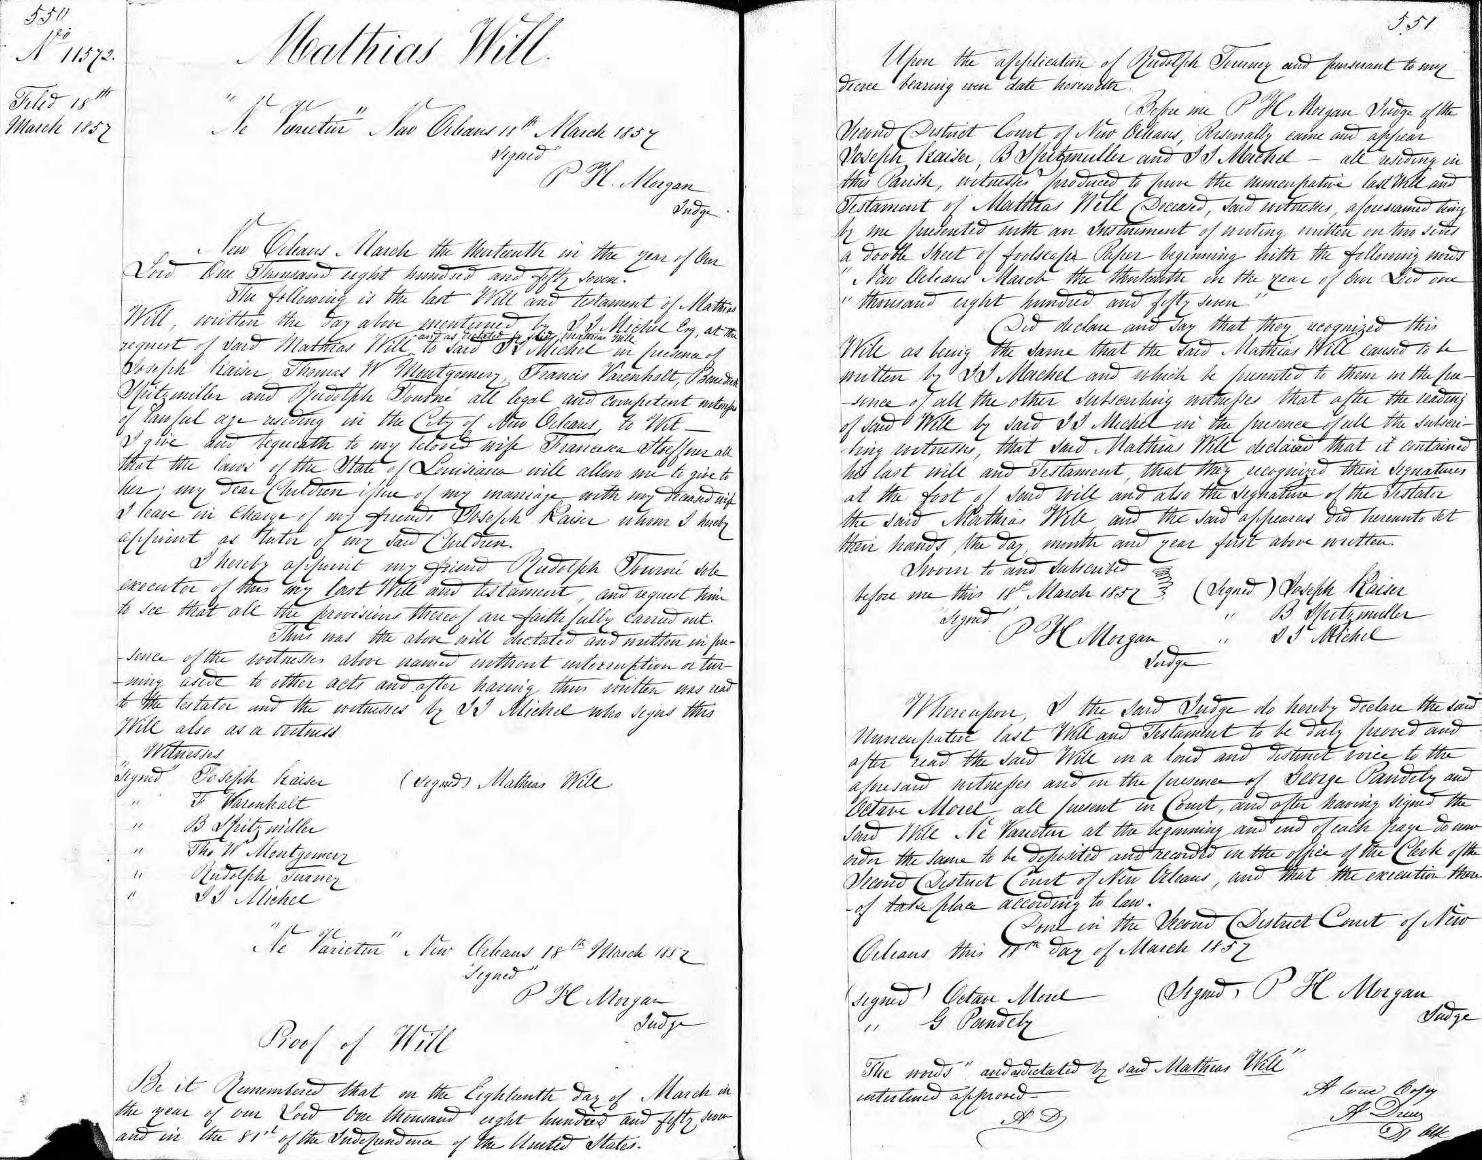 550
No 11572.
Filed 18th
March 1857
Mathias Will.
"Ne Varietur" New Orleans 18th March 1857
Signed"
P H. Morgan
Judge.
New Orleans March the thirteenth in the year of Our
Lord One Thousand eight hundred and fifty seven.
The following is the last Will and testament of Mathias
Will, written the day above mentioned by J J Michel Esq, at the
and as dictated by said Mathias Will
request of said Mathias Will to said J J Michel in presence of
Joseph Kaiser, Thomas W Montgomery, Francis Varenholt, Benedick
Spitzmiller and Rudolph Tourné all legal and competent witnesses
of lawful age residing in the City of New Orleans, to Wit —
I give and bequeath to my beloved wife Francisca Hoeffner all
that the laws of the State of Louisiana will allow me to give to
her; my dear Children issue of my marriage with my deceased wife
I leave in charge of my friends Joseph Kaiser whom I hereby
appoint as tutor of my said Children.
I hereby appoint my friend Rudolph Tourné sole
executor of this my last Will and testament, and request him
to see that all the provisions thereof are faithfully carried out.
This was the above will dictated and written in pre-
-sence of the witnesses above named without interruption or tur-
-ning aside to other acts and after having thus written was read
to the testator and the witnesses by J J Michel who signs this
Will also as a witness
Witnesses
"Signed" Joseph Kaiser (Signed) Mathias Will
" F Varenhalt
" B Spitzmiller
" Tho W Montgomery
" Rudolph Turney
" J J Michel
"Ne Varietur" New Orleans 18th March 1857
"Signed"
P H Morgan
Judge
Proof of Will
Be it Remembered that on the Eighteenth day of March in
the year of our Lord One thousand eight hundred and fifty seven
and in the 81st of the Independence of the United States.
551
Upon the application of Rudolph Tourney and pursuant to my
decree bearing even date herewith.
Before me P H Morgan Judge of the
Second District Court of New Orleans, Personally came and appear
Joseph Kaiser, B Spitzmuller and J J Michel — all residing in
this Parish, witnesses produced to prove the nuncupative last Will and
Testament of Mathias Will Deceased, said witnesses, aforenamed being
by me presented with an Instrument of writing written on two sides
a double sheet of foolscap Paper beginning with the following words
"New Orleans March the thirteenth in the year of Our Lord one
"thousand eight hundred and fifty seven"
Did declare and say that they recognized this
Will as being the same that the said Mathias Will caused to be
written by J J Michel and which he presented to them in the pre-
-sence of all the other subscribing witnesses that after the reading
of said Will by said J J Michel in the presence of all the subscri-
-bing witnesses, that said Mathias Will declared that it contained
his last will and Testament, that they recognized their signatures
at the foot of said will and also the signature of the Testator
the said Mathias Will and the said appearers did hereunto set
their hands, the day, month and year first above written.
Sworn to and subscribed
before me this 18th March 1857 (Signed) Joseph Kaiser
"Signed" " B Spitzmuller
P H Morgan " J J Michel
Judge
Whereupon, I the said Judge do hereby declare the said
Nuncupative last Will and Testament to be duly proved and
after read the said Will in a loud and distinct voice to the
aforesaid witnesses and in the presence of George Pandely and
Octave Morel all present in Court, and after having signed the
said Will Ne Varietur at the beginning and end of each page do now
order the same to be deposited and recorded in the office of the Clerk of the
Second District Court of New Orleans, and that the execution there-
-of take place according to law.
Done in the Second District Court of New
Orleans this 18th day of March 1857
(signed) Octave Morel (Signed) P H Morgan
" G Pandely Judge
The words "and as dictated by said Mathias Will"
interlined approved —
A D
A true Copy
A Dreux
Dy Clk